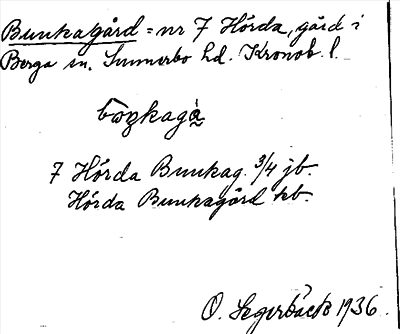 Bunkagård = nr 7 Hörda, gård i
Berga sn. Sunnerbo hd. Kronob. l.
7 Hörda Bunkag. 3/4 jb.
Hörda Bunkagård kb.
O. Segerbäck 1936.